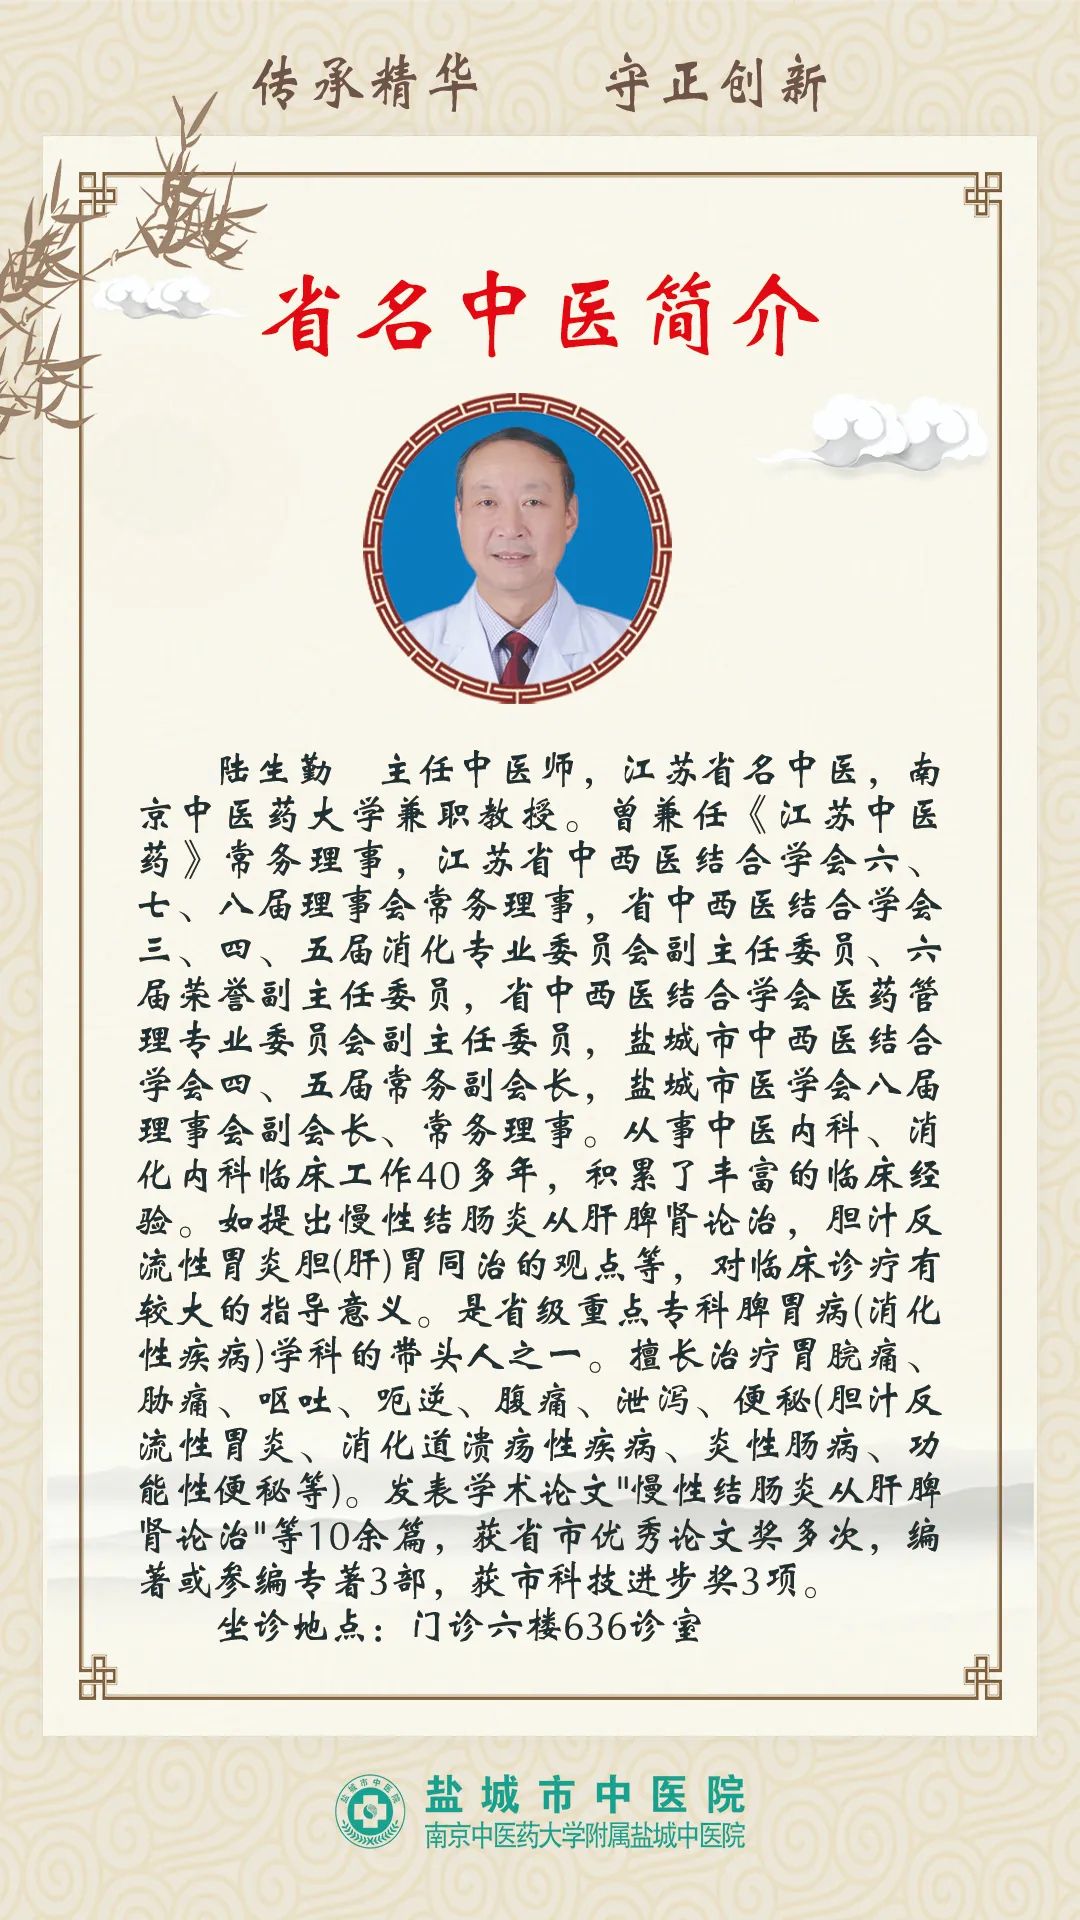 传承精华 守正创新
省名中医简介
陆生勤 主任中医师，江苏省名中医，南
京中医药大学兼职教授。曾兼任《江苏中医
药》常务理事，江苏省中西医结合学会六、
七、八届理事会常务理事，省中西医结合学会
三、四、五届消化专业委员会副主任委员、六
届荣誉副主任委员，省中西医结合学会医药管
理专业委员会副主任委员，盐城市中西医结合
学会四、五届常务副会长，盐城市医学会八届
理事会副会长、常务理事。从事中医内科、消
化内科临床工作40多年，积累了丰富的临床经
验。如提出慢性结肠炎从肝脾肾论治，胆汁反
流性胃炎胆(肝)胃同治的观点等，对临床诊疗有
较大的指导意义。是省级重点专科脾胃病(消化
性疾病)学科的带头人之一。擅长治疗胃脘痛、
胁痛、呕吐、呃逆、腹痛、泄泻、便秘(胆汁反
流性胃炎、消化道溃疡性疾病、炎性肠病、功
能性便秘等)。发表学术论文"慢性结肠炎从肝脾
肾论治"等10余篇，获省市优秀论文奖多次，编
著或参编专著3部，获市科技进步奖3项。
坐诊地点：门诊六楼636诊室
盐城市中医院
盐城市中医院
南京中医药大学附属盐城中医院